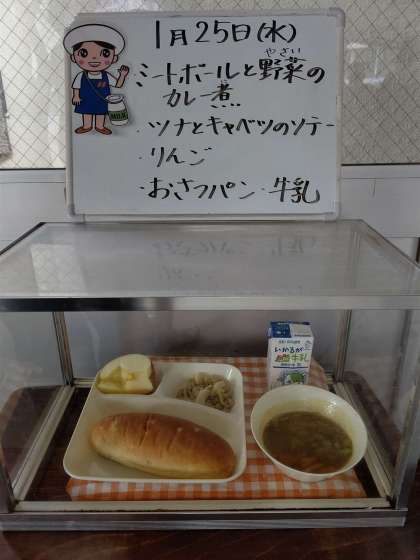 1月25日(水)
やさい
ミートボールと野菜の
カレー煮
・ツナとキャベツのソテー
・りんご
・おさつパン・牛乳
MILK
いかるが
牛乳